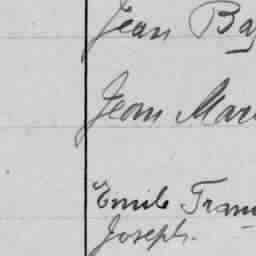 Jean Ba
Jean Mar
Emile Fran
Joseph.